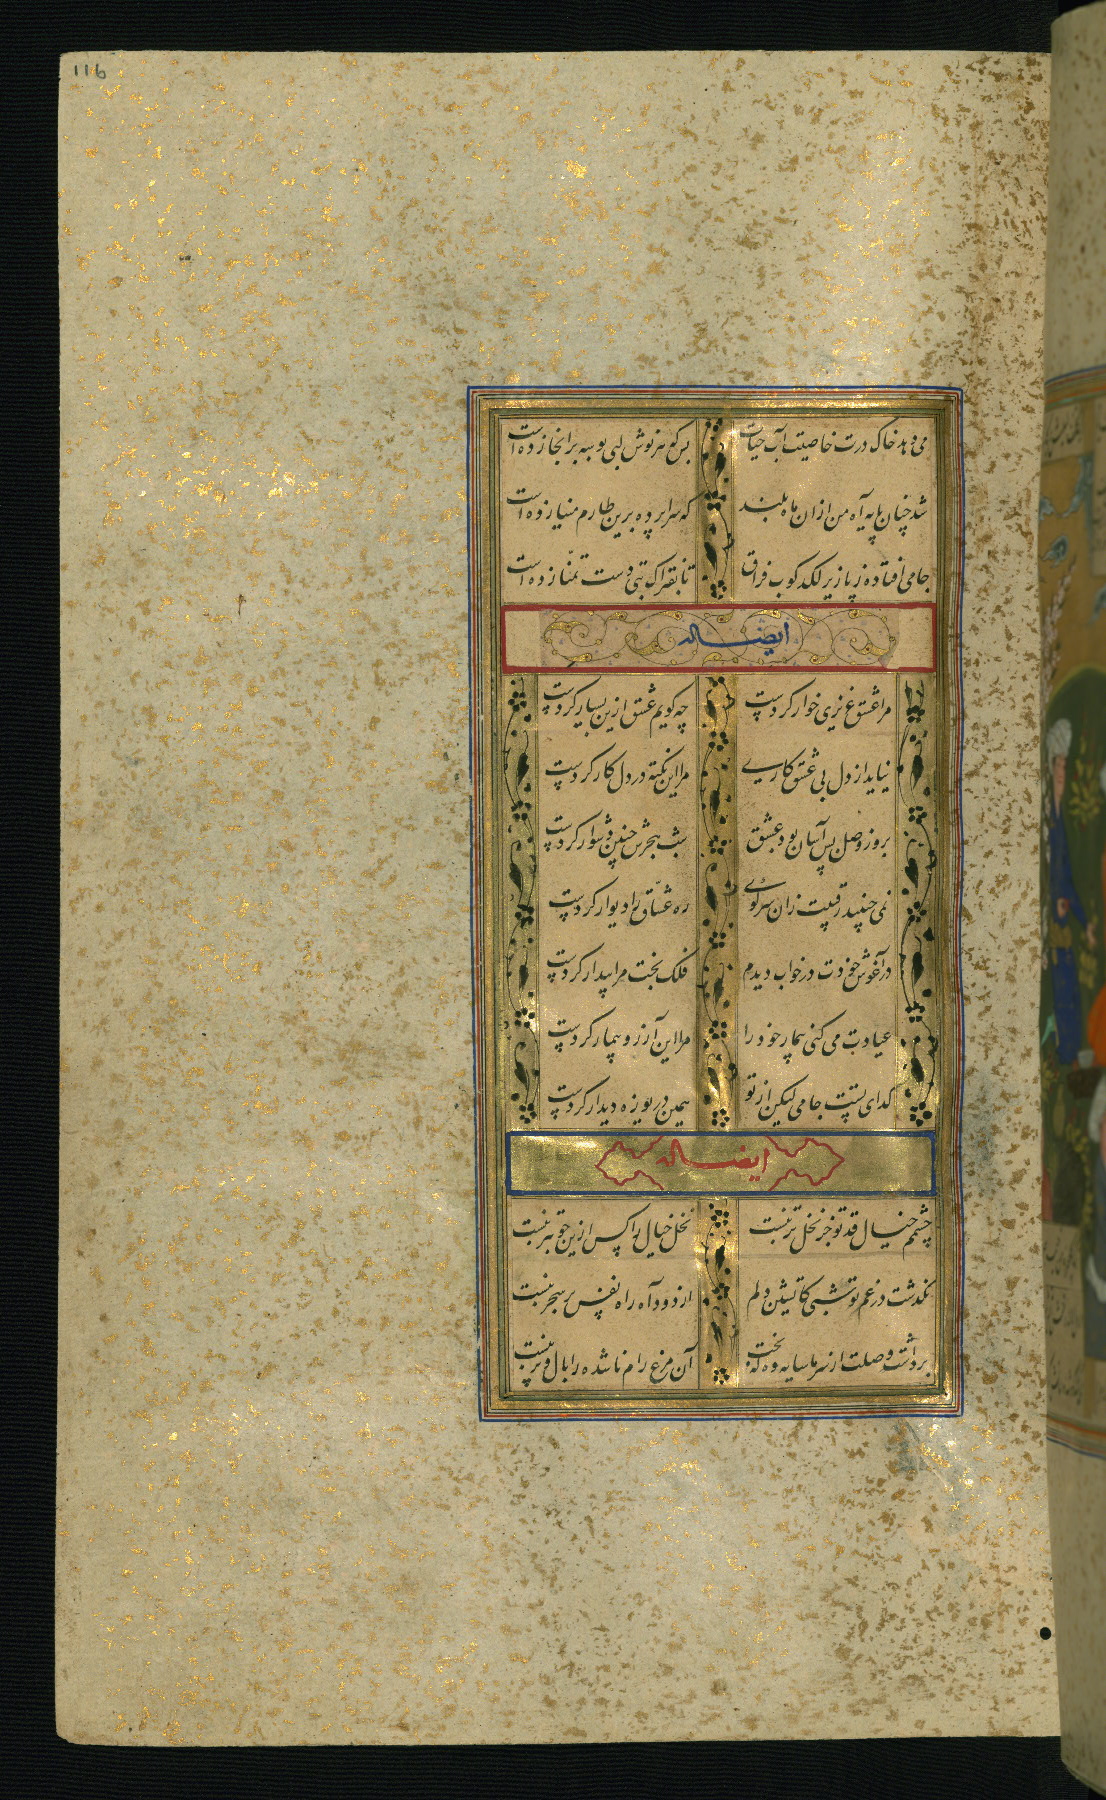 116
می دهد خاک درت خاصیت آب حیات
بس که هر نوش لبی بوسه بر انجا زده است
شد چنان پایه آه من از ان ماه بلند
که سراپرده برین طارم مینا زده است
جامی افتاده ز پا زیر لکدکوب فراق
تا بفتراک بتی دست تمنّا زده است
ایضاله
مرا عشق عزیزی خوار کردست
چه کویم عشق ازین بسیار کردست
نیاید از دل بی عشق کاری
مرا این نکته در دل کار کردست
بروز وصل بس آسان بود عشق
شب هجرش چنین دشوار کردست
نمی جنبد رقیبت زان سر کوی
ره عشّاق را دیوار کردست
در آغوش خودت در خواب دیدم
فلک بخت مرا بیدار کردست
عیادت می کنی بیمار خود را
مرا این آرزو بیمار کردست
کدای تست جامی لیکن از تو
همین دریوزه دیدار کردست
ایضاله
چشمم خیال قد تو جز نخل تر نبست
نخل خیال را کس ازین خوبتر نبست
نکذشت در غم تو شبی کاتشین دلم
از دود آه راه نفس بر سحر نبست
برداشت وصلت از سر ما سایه وه که بخت
آن مرغ رام ناشده را بال و پر نبست